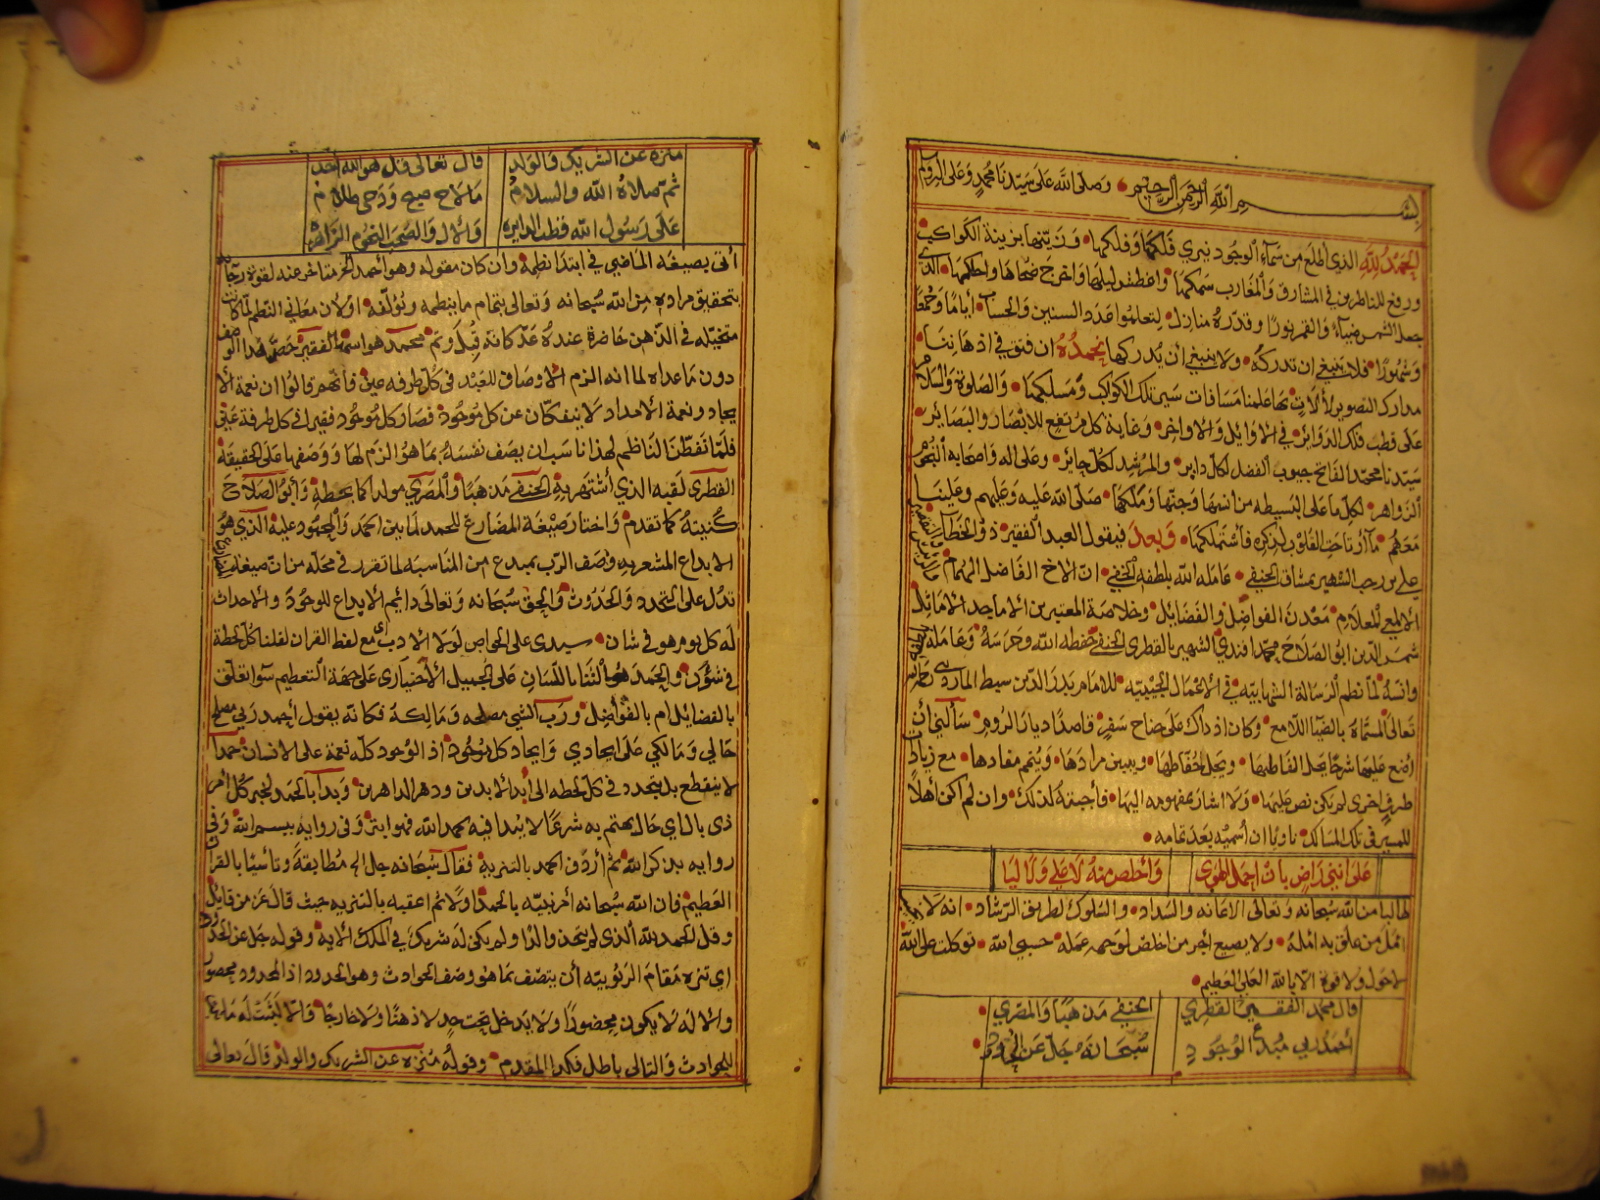 بسم الله الرحمن الرحيم وصلى الله على سيدنا محمد وعلى اله
الحمد لله الذي اطلع من سماء الوجود نيري فلكها وفلكها وزينها بزينة الكواكب
ورفع للناظرين في المشارق والمغارب سمكها واغطش ليلها واخرج ضحاها واحلكها الذي
جعل الشمس ضياء والقمر نورا وقدره منازل لتعلموا عدد السنين والحساب أياما وجمعا
وشهورا فلا ينبغي ان تدركه ولا ينبغي ان يدركها نحمده ان فتق في اذهاننا
مدارك التصوير لألات بها علمنا مسافات سير تلك الكواكب ومسلكها والصلوة والسلام
على قطب فلك الدوائر في الاوايل والاواخر وغاية كل مرتفع للابصار والبصائر
سيدنا محمد الفاتح جيوب الفضل لكل داير والمرشد لكل حائر وعلى اله واصحابه النجوم
الزواهر لكل ما على البسيطه من انسها وجنها وملكها صلى الله عليه وعليهم وعلينا
معهم ما ارتاحت القلوب لذكره فأشتملكها وبعد فيقول العبد الفقير ذو الخطأ
علي بن رجب الشهير بمشاق الحنفي عامله الله بلطفه الخفي ان الاخ الفاضل الهمام
الالمعي العلام معدن الفواضل والفضايل وخلاصة المعتبرين الاماجد الاماثل
شمس الدين ابو الصلاح محمد افندي الشهير بالقطري الحنفي حفظه الله وحرسه وعامله
وانسه لما نظم الرسالة الشهابيه في الاعمال الجيبيه للامام بدر الدين سبط المارديني رحمه الله
تعالى المسماة بالضيا اللامع وكان اذ ذاك على جناح سفر قاصدا ديار الروم سألني أن
اضع عليها شرحا يحل الفاظها ويجل حفاظها ويبين مرادها ويتمم مفادها مع زيادة
طرق اخرى لم يكن نص عليها ولا اشار بمفهومه اليها فأجبته لذلك وان لم اكن أهلا
للسير في تلك المسالك ناويا ان أسميه بعد تمامه
على انني راض بان احمل الهوى وأخلص منه لا علي ولا ليا
طالبا من الله سبحانه وتعالى الاعانه والسداد والسلوك لطريق الرشاد انه لا يخيب
امل من علق به امله ولا يضيع أجر من اخلص لوجهه عمله حسبي الله توكلت على الله
لا حول ولا قوة الا بالله العلى العظيم
قال محمد الفقير القطري الحنفي مذهبا والمصري
أحمد ربي مبدأ الوجود سبحانه جل عن الحدود
منزه عن الشريك والولد قال تعالى قل هو الله احد
ثم صلاة الله والسلام ما لاح صبح ودجى ظلام
على رسول الله قطب الدايره والال والصحب النجوم الزاهره
أتى بصيغة الماضي في ابتداء نظمه وان كان مقوله وهو أحمد الخ متاخر عنه لقوة رجائه
بتحقيق مراده من الله سبحانه وتعالى بتمام ما ينظمه ويؤلفه او لان معاني النظم لما كانت
متخيله في الذهن حاضرة عنده عد كانه قيل وتم محمد هو اسمه الفقير خص هذا الوصف
دون ما عداه لما انه الزم الاوصاف للعبد في كل طرفه عين فأنهم قالوا ان نعمة الا
يجاد ونعمة الامداد لا ينفكان عن كل موجود فصار كل موجود فقيرا في كل طرفة عين
فلما تفطن الناظم لهذا ناسب ان يصف نفسه بما هو الزم لها ووصفها على الحقيقة
القطري لقبه الذي أشتهر به الحنفي مذهبا والمصري مولدا كما بخطه وأبو الصلاح
كنيته كما تقدم واختار صيغة المضارع للحمد لما بين احمد والمحمود عليه الذي هو
الابداع المشعر به وصف الرب بمبدع من المناسبه لما تقرر في محله من ان صيغة المضارع
تدل على التجدد والحدوث والحق سبحانه وتعالى دائم الابداع للوجود والاحداث
له كل يوم هو في شان سيدي علي الخواص لولا الادب مع لفظ القران لقلنا كل لحظة
في شؤن والحمد هو الثنا باللسان على الجميل الأختياري على جهة التعظيم سوا تعلق
بالفضايل ام بالفواضل ورب الشي مصلحه ومالكه فكانه يقول أحمد ربي مصلح
حالي ومالكي على ايجادي وايجاد كل موجود اذ الوجود كله نعمة على الانسان حمدا
لا ينقطع بل يتجدد في كل لحظه الى أبد الابدين ودهر الداهرين وبدأ بالحمد لخبر كل أمر
ذي بال اي حال يهتم به شرعا لا يبدا فيه بحمد الله فهو ابتر وفي روايه ببسم الله وفي
روايه بذكر الله ثم أردف الحمد بالتنزيه فقال سبحانه جل الخ مطابقة وتأسيا بالقرآن
العظيم فان الله سبحانه أمر نبيه بالحمد اولا ثم اعقبه بالتنزيه حيث قال عز من قايل
وقل الحمد لله الذي لم يتخذ والدا ولم يكن له شريك في الملك الايه وقوله جل عن الحدود
اي تنزه مقام الربوبيه أن يتصف بما هو وصف الحوادث وهو الحدود اذ المحدود محصور
والاله لا يكون محصورا ولا يدخل تحت حد لا ذهنا ولا خارجا والا لثبت له ما ثبت
للحوادث والتالي باطل فكذا المقدم وقوله منزه عن الشريك والولد قال تعالى